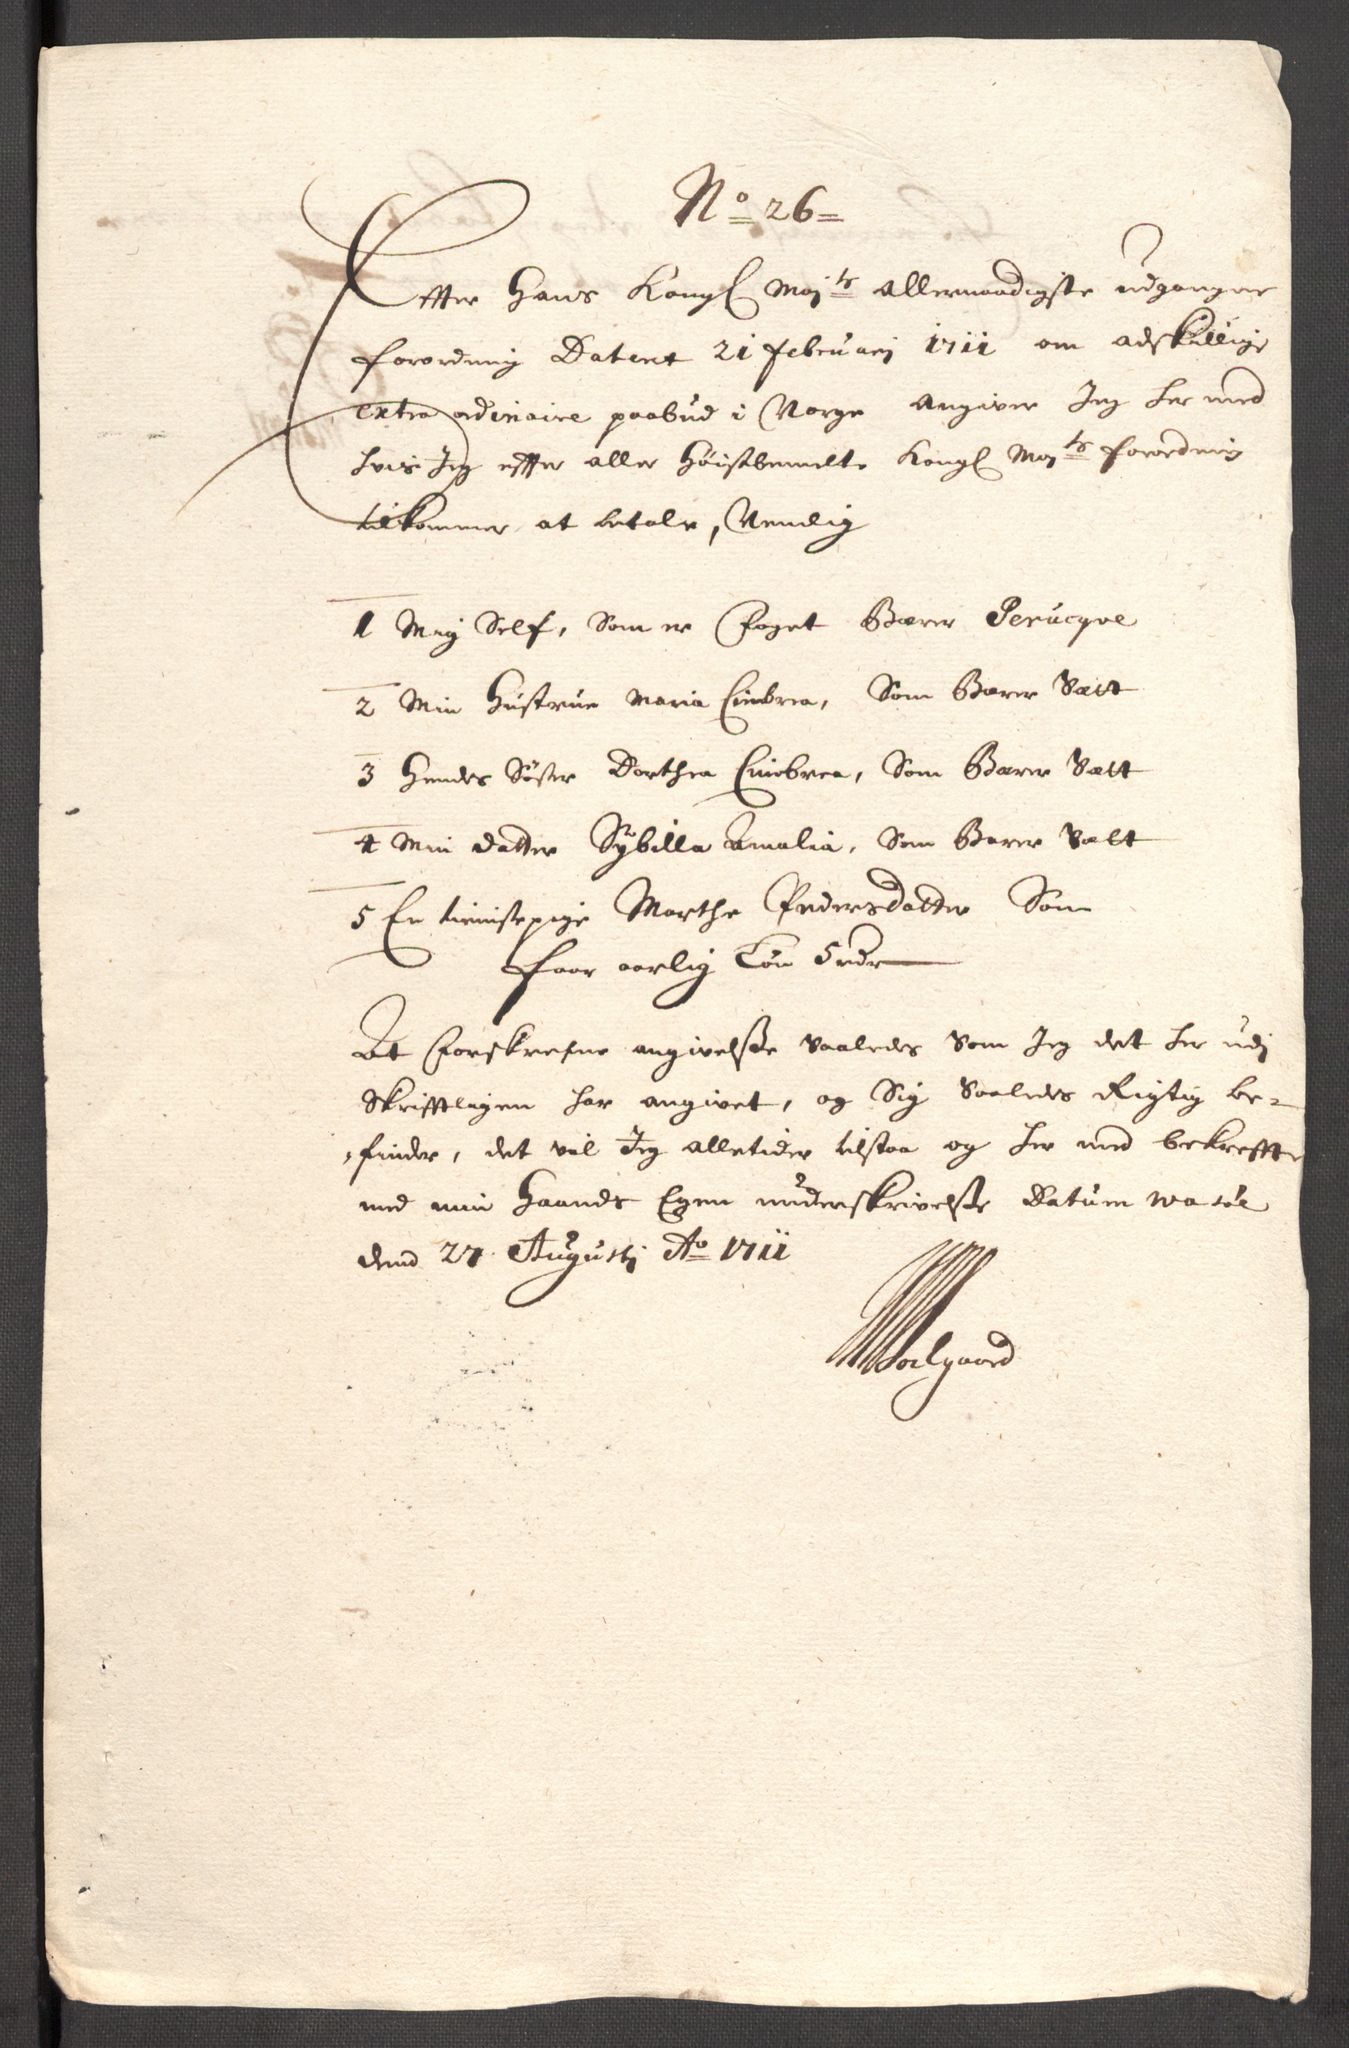 No 26
Effter Hans Kongl Majts Allernaadigste udgangne
forordning Dateret 21 Februarj 1711 om adskillige
extra ordinaire paabud i Norge angiver Jeg her med
hvis Jeg effter aller Høistbemelte Kongl Majts forordning
tilkommer at betale, Nemlig
1 Mig Self, Som er Foget Bærer Perucqve
2 Min Hustrue Maria Cimbrea, Som Bærer Sætt
3 Hendes Søster Dorthea Cimbrea, Som Bærer Sætt
4 Min datter Sybilla Amalia, Som Bærer Sætt
5 En tienistepige Marthe Pedersdatter Som
faar aarlig Løn 5 rdr
At Forskrefne angivelsse saaledes Som Jeg det her udj
Skrifftlagen har angivet, og Sig Saaledes Rigtig be-
finder, det vil Jeg alletider tilstaa og her med bekreffte
med min Haands Egen underskrivelsse Datum
dend 27 Augustj Ao 1711